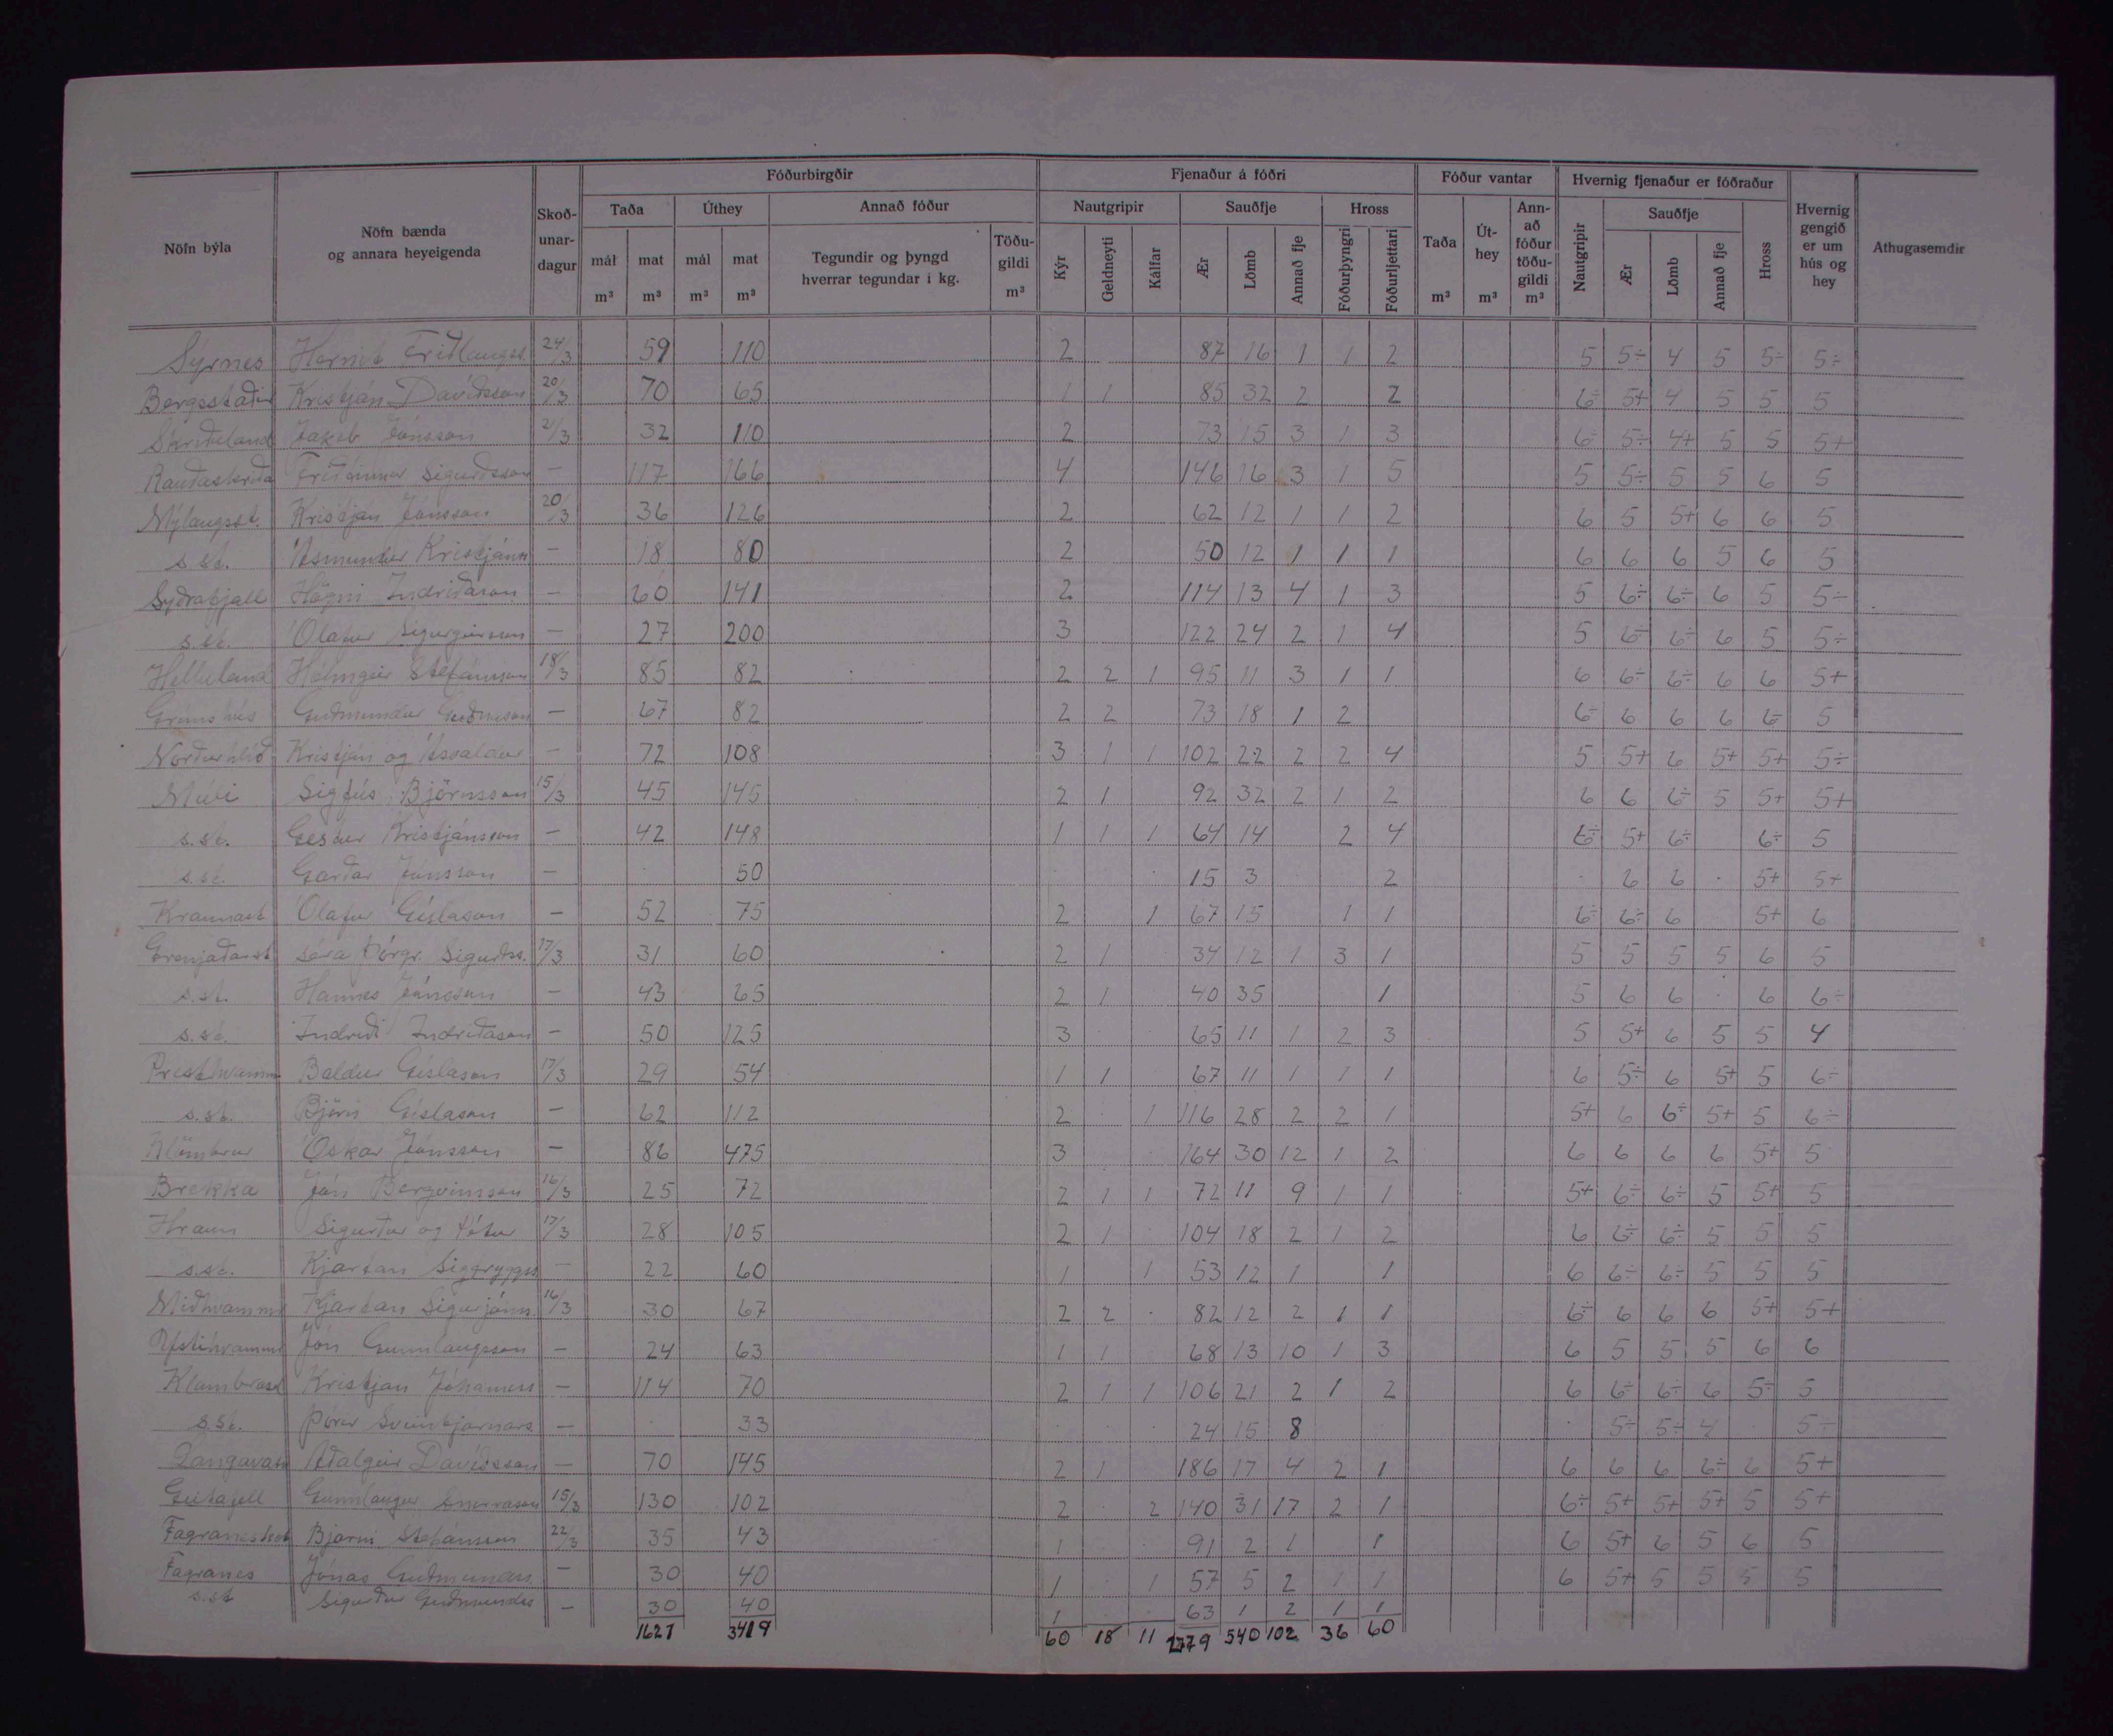 Fóðurbirgðir Fjenaður á fóðri Fóður vantar Hvernig fjenaður er fóðraður
Nöfn býla Nöfn bænda og annara heyeigenda Skoð-unar-dagur Taða Úthey Annað fóður Nautgripir Sauðfje Hross Taða Út-hey Ann-að fóður töðu-gildi Nautgripir Sauðfje Hross Hvernig gengið er um hús og hey Athugasemdir
mál m³ mat m³ mál m³ mat m³ Tegundir og þyngd hverrar tegundar í kg. Töðu-gildi m³ Kýr Geldneyti Kálfar Ær Lömb Annað fje Fóðurþyngri Fóðurljettari m³ m³ m³ Ær Lömb Annað fje
Sýrnes Friðlaugss. 24/3 59 110 2 87 16 1 1 2 5 5÷ 4 5 5÷ 5÷
Bergsstaðir Kristján Davíðsson 20/3 70 65 1 1 85 32 2 2 6÷ 5+ 4 5 5 5
Skriðuland Jakob Jónsson 21/3 32 110 2 73 15 3 1 3 6÷ 5÷ 4+ 5 5 5+
Rauðaskriða Friðfinnur Sigurðsson — 117 166 4 146 16 3 1 5 5 5÷ 5 5 6 5
Mýlaugsst. Kristján Jónsson 20/3 36 126 2 62 12 1 1 2 6 5 5+ 6 6 5
s. st. Ásmundur Kristjánss — 18 80 2 50 12 1 1 1 6 6 6 5 6 5
Syðrafjall Högni Indriðason — 60 141 2 114 13 4 1 3 5 6÷ 6÷ 6 5 5÷
s. st. Ólafur Sigurgeirsson — 27 200 3 122 24 2 1 4 5 6÷ 6÷ 6 5 5÷
Helluland Hólmgeir Stefánsson 18/3 85 82 2 2 1 95 11 3 1 1 6 6÷ 6÷ 6 6 5+
Grímshús Guðmundur Guðnason — 67 82 2 2 73 18 1 2 6÷ 6 6 6 6÷ 5
Norðurhlíð Kristján og Ásvaldur — 72 108 3 1 1 102 22 2 2 4 5 5+ 6 5+ 5+ 5÷
Múli Sigfús Björnsson 15/3 45 145 2 1 92 32 2 1 2 6 6 6÷ 5 5+ 5+
s. st. Gestur Kristjánsson — 42 148 1 1 1 64 14 2 4 6÷ 5+ 6÷ 6÷ 5
s. st. Garðar Jónsson — 50 15 3 2 6 6 5+ 5+
Kraunast Ólafur Gíslason — 52 75 2 1 67 15 1 1 6÷ 6÷ 6 5+ 6
Grenjaðarst. séra Þorgr. Sigurðss. 17/3 31 60 2 1 34 12 1 3 1 5 5 5 5 6 5
s. st. Hannes Jónsson — 43 65 2 1 40 35 1 5 6 6 6 6÷
s. st. Indriði Indriðason — 50 125 3 65 11 1 2 3 5 5+ 6 5 5 4
Presthvammur Baldur Gíslason 17/3 29 54 1 1 67 11 1 1 1 6 5÷ 6 5+ 5 6÷
s. st. Björn Gíslason — 62 112 2 1 116 28 2 2 1 5+ 6 6÷ 5+ 5 6÷
Klömbrur Óskar Jónsson — 86 475 3 164 30 12 1 2 6 6 6 6 5+ 5
Brekka Jón Bergvinsson 16/3 25 72 2 1 1 72 11 9 1 1 5+ 6÷ 6÷ 5 5+ 5
Hraun Sigurður og Pétur 17/3 28 105 2 1 104 18 2 1 2 6 6÷ 6÷ 5 5 5
s. st. Kjartan Siggryggs — 22 60 1 1 53 12 1 1 6 6÷ 6÷ 5 5 5
Miðhvammur Kjartan Sigurjónss. 16/3 30 67 2 2 82 12 2 1 1 6÷ 6 6 6 5+ 5+
Ystihvammur Jón Gunnlaugsson — 24 63 1 1 68 13 10 1 3 6 5 5 5 6 6
Klambrasel Kristján Jóhanness — 114 70 2 1 1 106 21 2 1 2 6 6÷ 6÷ 6 5÷ 5
s. st. Þórir Sveinbjarnars. — 33 24 15 8 5÷ 5÷ 4 5÷
Langavatn Aðalgeir Davíðsson — 70 145 2 1 186 17 4 2 1 6 6 6 6÷ 6 5+
Geitafell Gunnlaugur Snorrason 15/3 130 102 2 2 140 31 17 2 1 6÷ 5+ 5+ 5+ 5 5+
Fagraneskot Bjarni Stefánsson 22/3 35 43 1 91 2 1 1 6 5+ 6 5 6 5
Fagranes Jónas Guðmundss. — 30 40 1 1 57 5 2 1 1 6 5+ 5 5 5 5
s. st Sigurður Guðmundss — 30 40 1 63 1 2 1 1
1627 3419 60 18 11 2779 540 102 36 60